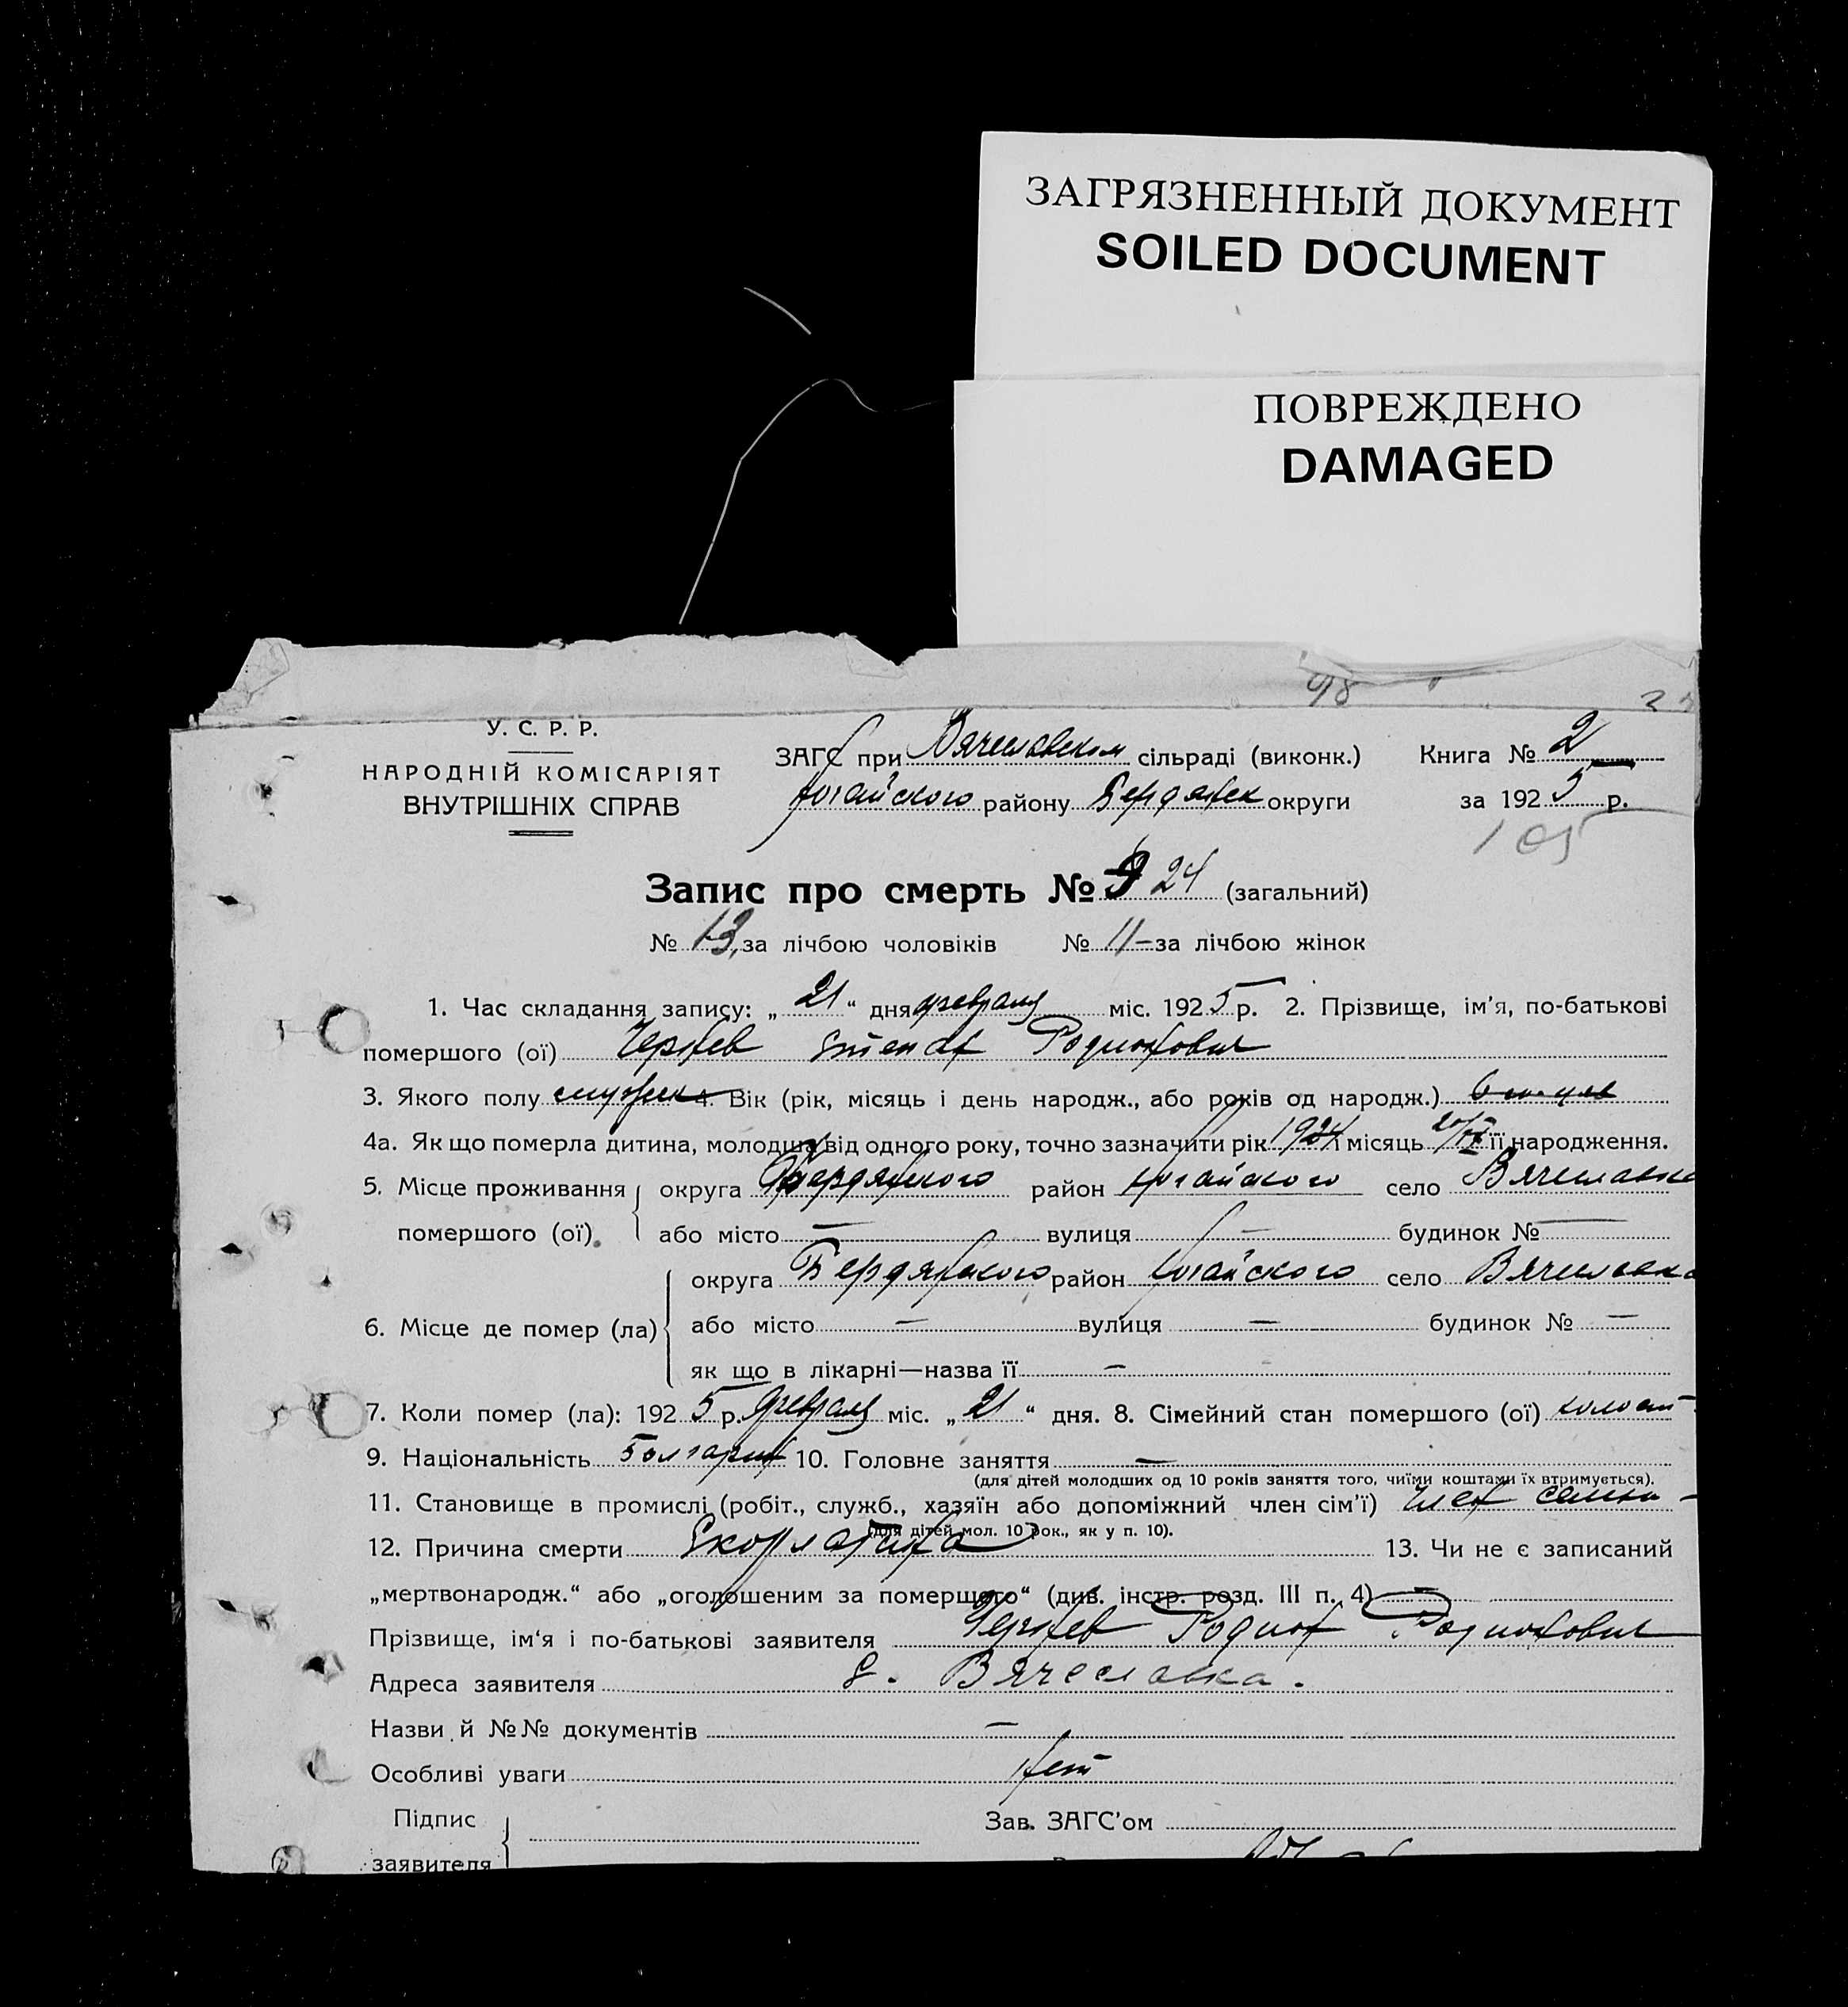 ЗАГРЯЗНЕННЫЙ ДОКУМЕНТ
SOILED DOCUMENT
ПОВРЕЖДЕНО
DAMAGED
98
У. С. Р. Р.
НАРОДНІЙ КОМІСАРІЯТ
ВНУТРІШНІХ СПРАВ
ЗАГС при Вячеславском сільраді (виконк.) Книга № 2
Ногайского района Бердянск округи за 1925 р.
105
Запис про смерть № 24 (загальний)
№ 13, за лічбою чоловіків № 11 – за лічбою жінок
1. Час складання запису: „ 21 “ дня февраля міс. 1925 р. 2. Прізвище, ім’я, по-батькові
помершого (ої) Чернев Степан Родионович
3. Якого полу мужск 4. Вік (рік, місяць і день народж., або років од народж.)
4а. Як що померла дитина, молодша від одного року, точно зазначити рік 1924 місяць її народження.
5. Місце проживання помершого (ої) округа Бердянского район Ногайского село Вячеславка
або місто — вулиця — будинок № —
6. Місце де помер (ла) округа Бердянского район Ногайского село Вячеславка
або місто — вулиця — будинок № —
як що в лікарні—назва її —
7. Коли помер (ла): 1925 р. февраля міс. „ 21 “ дня. 8. Сімейний стан помершого (ої) холост
9. Національність Болгарин 10. Головне заняття —
(для дітей молодших од 10 років заняття того, чиїми коштами їх втримується).
11. Становище в промислі (робіт., служб., хазяїн або допоміжний член сім’ї) член семьи
(для дітей мол. 10 рок., як у п. 10).
12. Причина смерти Скорлатина 13. Чи не є записаний
„мертвонародж.“ або „оголошеним за помершого“ (див. інстр. розд. III п. 4) —
Прізвище, ім‘я і по-батькові заявителя Чернев Родион Родионович
Адреса заявителя с. Вячеславка.
Назви й №№ документів —
Особливі уваги нет
Підпис Зав. ЗАГС’ом
заявителя